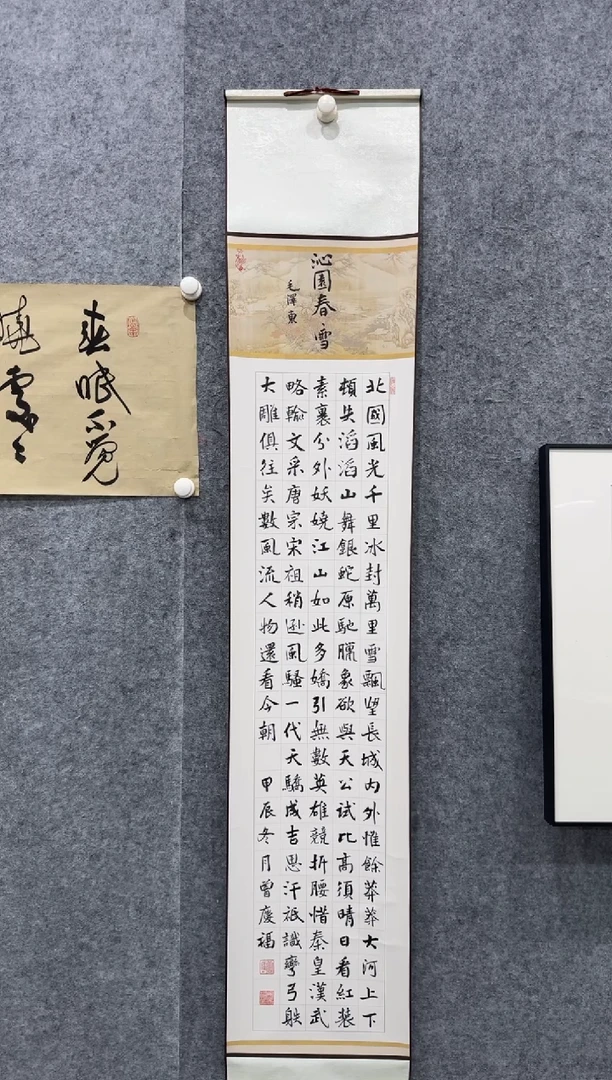 沁園春·雪
毛澤東
北國風光千里冰封萬里雪飄望長城内外惟餘莽莽大河上下
頓失滔滔山舞銀蛇原馳臘象欲與天公試比高須晴日看紅裝
素裹分外妖嬈江山如此多嬌引無數英雄競折腰惜秦皇漢武
略輸文采唐宗宋祖稍遜風騷一代天驕成吉思汗祇識彎弓射
大雕俱往矣數風流人物還看今朝 甲辰冬月曾慶福
春眠不覺
曉處々